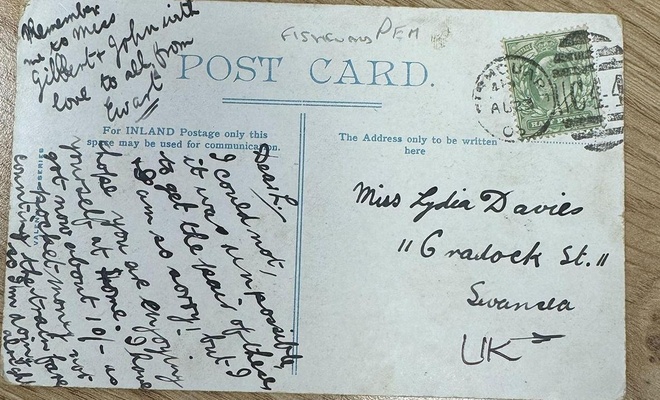 Remember
me to Miss
Gilbert & John with
love to all from
Ewart
FISHGUARD PEM
POST CARD.
For INLAND Postage only this
space may be used for communication.
The Address only to be written
here
SERIES
AU 23
Dear L,
I could not,
it was impossible
to get the pair of these,
I am so sorry! but I
hope you are enjoying
yourself at Home. I have
got now about 10/- as
pocket money not
counting the train fare
so I'm doing
alright
Miss Lydia Davies
11 Cradock St.
Swansea
UK